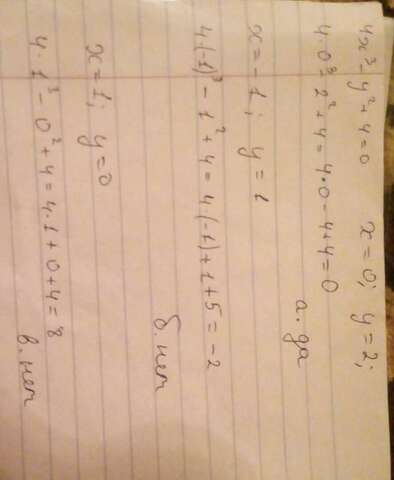 4x³-y²+4=0    x=0; y=2;
4·0³-2²+4=4·0-4+4=0
а. да
x=-1; y=1
4(-1)³-1²+4=4(-1)+1+5=-2
б. нет
x=1; y=0
4·1³-0²+4=4·1+0+4=8
в. нет